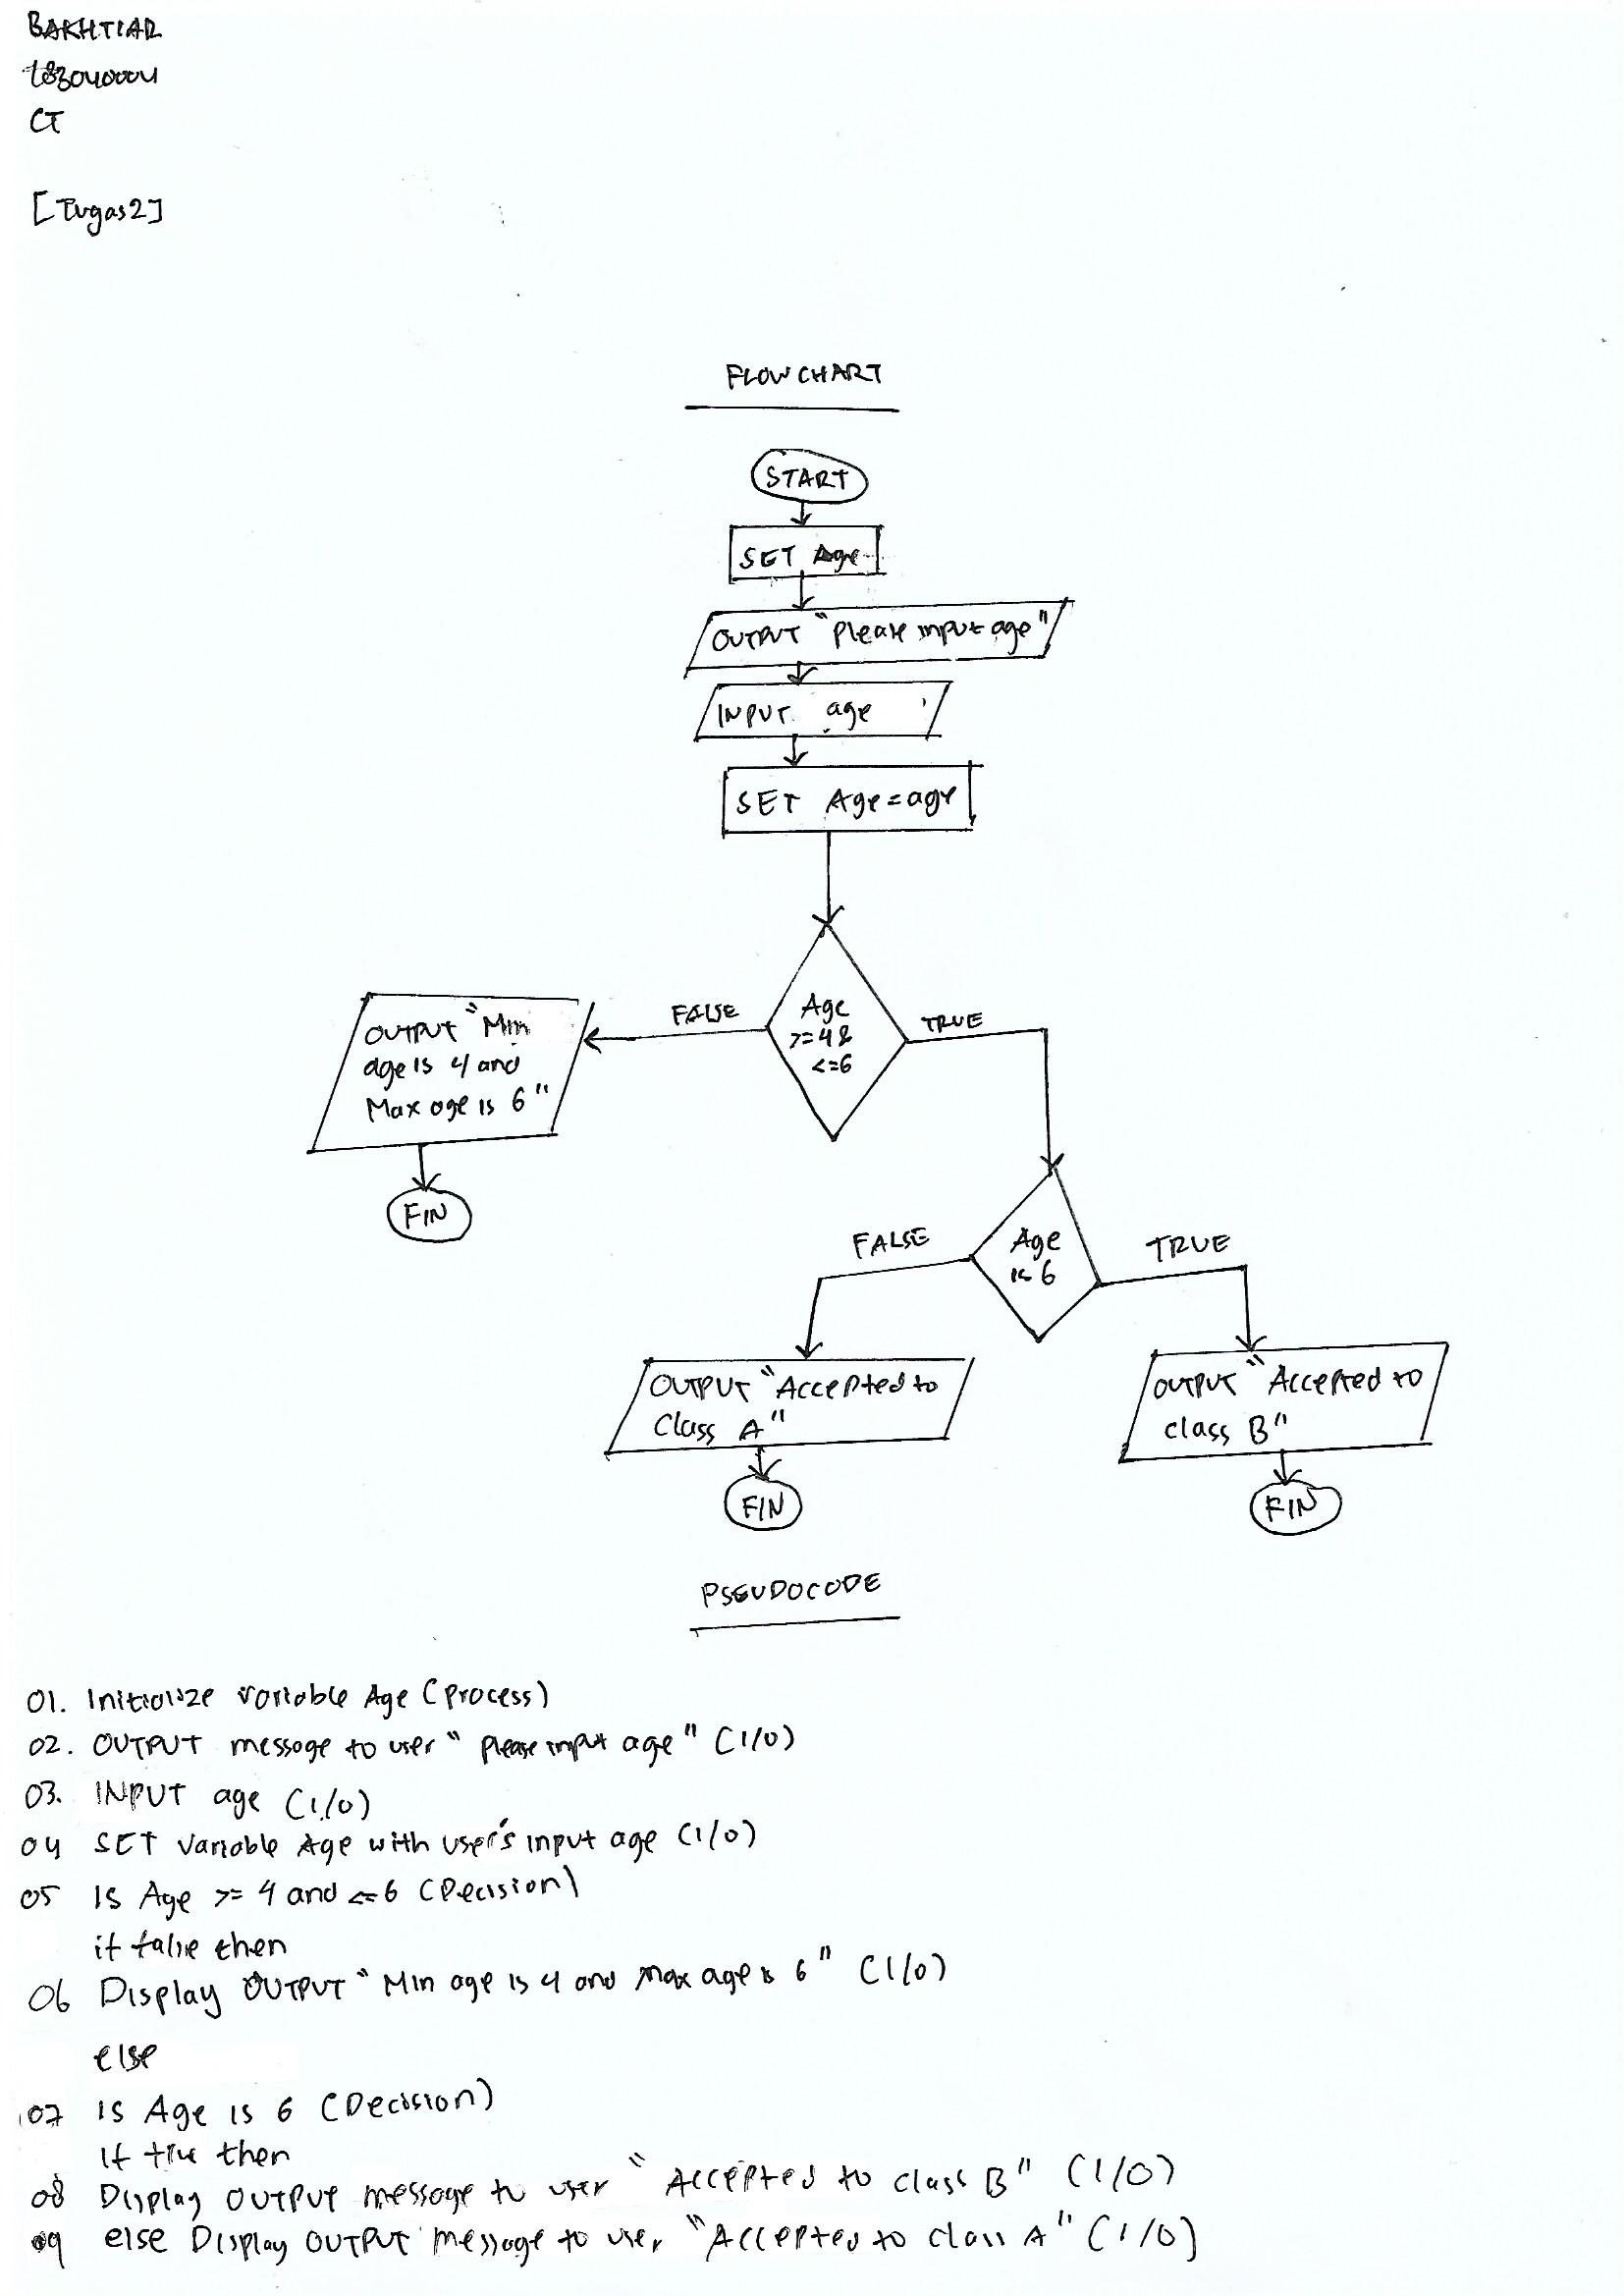 BAKHTIAR
18304000U
CT
[Tugas2]
FLOWCHART
START
SET Age
OUTPUT "Please input age"
INPUT age
SET Age = age
Age
>=4 &
<=6
FALSE
TRUE
OUTPUT "Min
age is 4 and
Max age is 6"
FIN
Age
is 6
FALSE
TRUE
OUTPUT "Accepted to
Class A"
FIN
OUTPUT "Accepted to
class B"
FIN
PSEUDOCODE
01. Initialize variable Age (Process)
02. OUTPUT message to user "Please input age" (I/O)
03. INPUT age (I/O)
04 SET variable Age with user's input age (I/O)
05 Is Age >= 4 and <=6 (Decision)
if false then
06 Display OUTPUT "Min age is 4 and max age is 6" (I/O)
else
07 Is Age is 6 (Decision)
If true then
08 Display OUTPUT message to user "Accepted to class B" (I/O)
09 else Display OUTPUT message to user "Accepted to class A" (I/O)